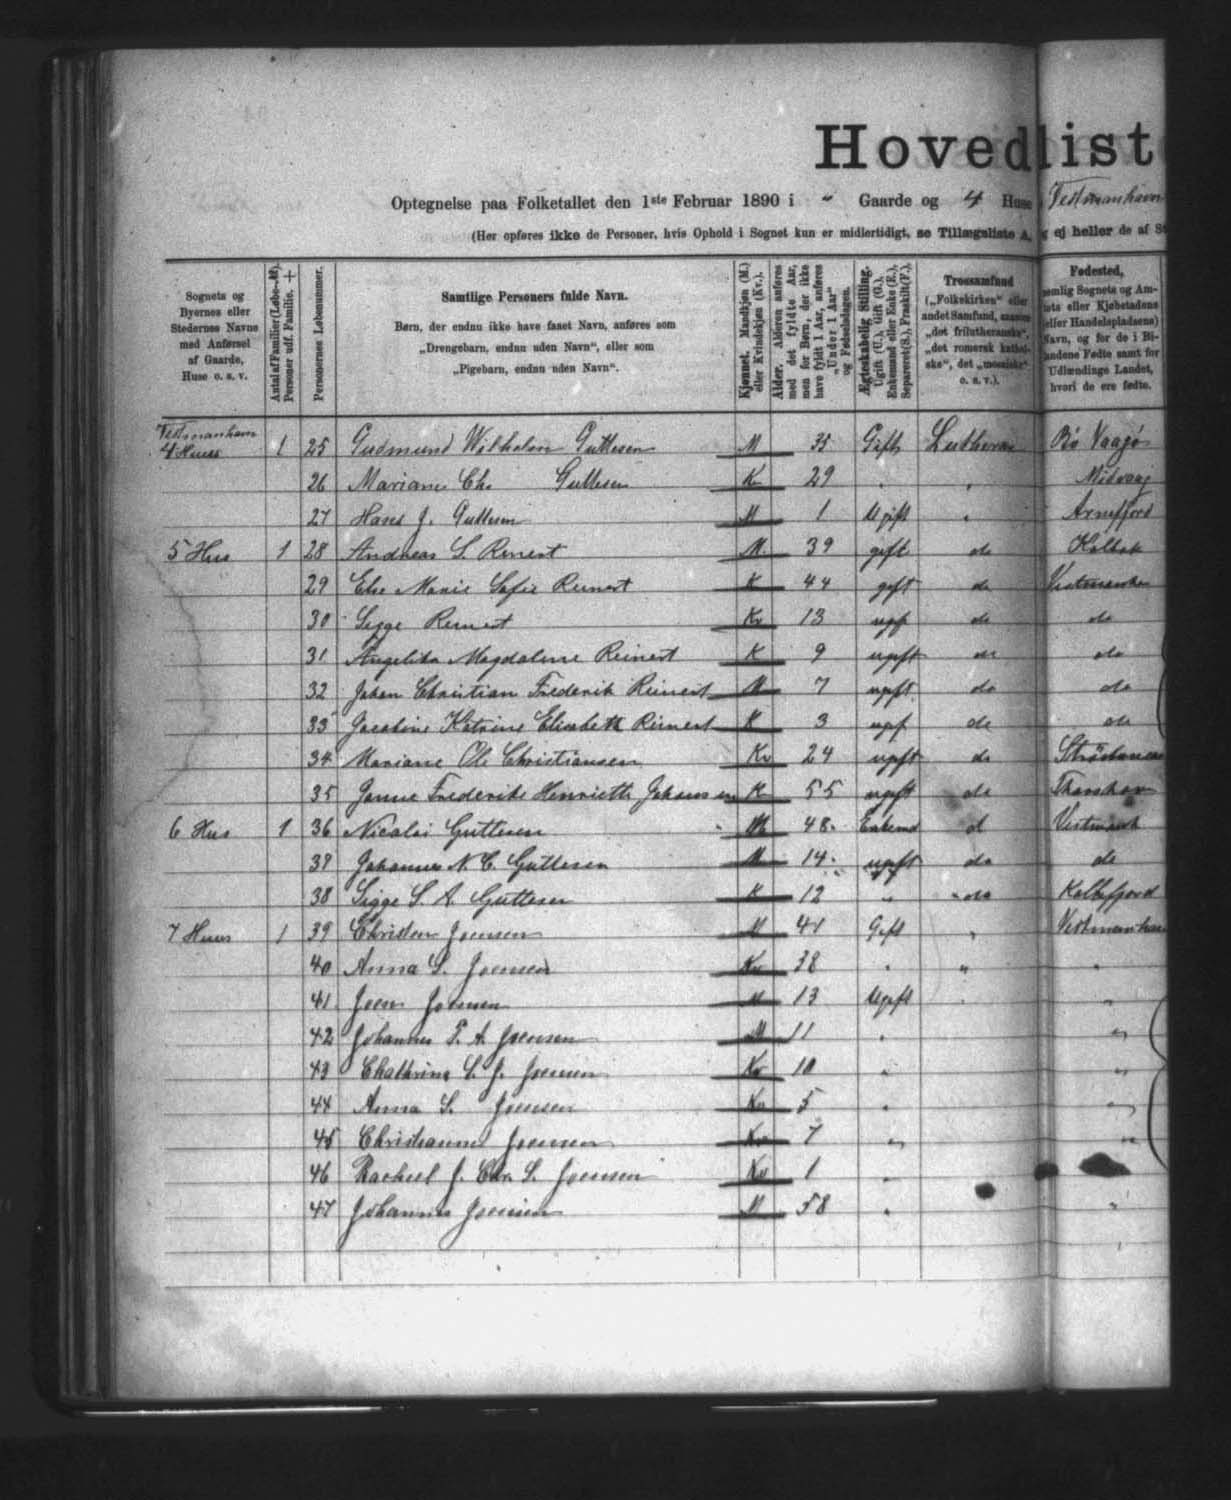 Hovedlist
Optegnelse paa Folketallet den 1ste Februar 1890 i " Gaarde og 4 Huse Vestmanhavn
(Her opføres ikke de Personer, hvis Ophold i Sognet kun er midlertidigt, se Tillægsliste A, og ej heller de af S
Sognets og Byernes eller Stedernes Navne med Anførsel af Gaarde, Huse o. s. v.
Antal af Familier (Løbe-№). Personer udf. Familie. +
Personernes Løbenummer.
Samtlige Personers fulde Navn.
Børn, der endnu ikke have faaet Navn, anføres som
„Drengebarn, endnu uden Navn“, eller som
„Pigebarn, endnu uden Navn“.
Kjønnet. Mandkjøn (M.) eller Kvindekjøn (Kv.).
Alder. Alderen anføres med det fyldte Aar, men for Børn, der ikke have fyldt 1 Aar, anføres „Under 1 Aar“ og Fødselsdagen.
Ægteskabelig Stilling. Ugift (U.), Gift (G.), Enkemand eller Enke (E.), Separeret (S.), Fraskilt (F.).
Trossamfund („Folkekirken“ eller andet Samfund, saasom „det frilutheranske“, „det romersk katholske“, det „mosaiske“ o. s. v.).
Fødested, nemlig Sognets og Amtets eller Kjøbstadens (eller Handelspladsens) Navn, og for de i Bilandene Fødte samt for Udlændinge Landet, hvori de ere fødte.
Vestmanhavn
4 Huus 1 25 Gudmund Wilhelm Guttesen M 35 Gift Lutheran Bø Vaagø
26 Mariane Chr. Guttesen K 29 " " Midvaag
27 Hans J. Guttesen M 1 Ugift " Arnefjord
5 Hus 1 28 Andreas S. Reinert M. 39 gift do Kolbak
29 Else Marie Sofie Reinert K 44 gift do Vestmanha
30 Sigge Reinert Kv 13 ugift do do
31 Angelika Magdalene Reinert K 9 ugift do do
32 Johan Christian Frederik Reinert M 7 ugift do do
33 Jacobine Katrine Elisabeth Reinert K 3 ugf do do
34 Mariane Ole Christiansen Kv 24 ugift do
35 Janne Frederike Henriette Johansen K 55 ugift do Thorshavn
6 Hus 1 36 Nicolai Guttesen M 48. Enkemd d Vestmanh
37 Johannes N. C. Guttesen M 14. ugift do do
38 Sigge S. A. Guttesen K 12 " do Kollefjord
7 Huus 1 39 Christen Joensen M 41 Gift " Vestmanhav
40 Anna S. Joensen Kv 38 " " "
41 Joen Joensen M 13 Ugift " "
42 Johannes P. A. Joensen M 11 " "
43 Chathrina S. J. Joensen Kv 10 " "
44 Anna S. Joensen Kv 5 " "
45 Christianne Joensen Kv 7 " "
46 Racheel J. Chr. S. Joensen Kv 1 "
47 Johannes Joensen M 58 " "